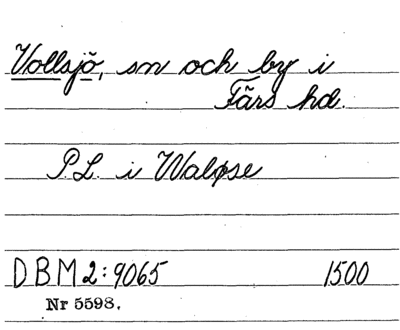 Vollsjö, sn och by i
Färs hd.
P.L. i Waløse
DBM 2:9065 1500
Nr 5598.